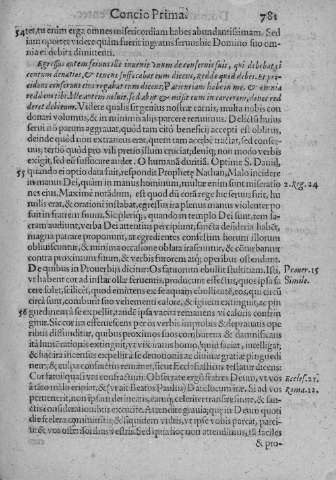 Concio Prima. 781
54 ter, tu enim erga omnes misericordiam habes abundantissimam. Sed
iam oportet videre quàm fuerit ingratus seruus hic Domino suo om-
nia ei debita dimittenti.
Egressus autem seruus ille inuenit vnum de conseruis suis, qui debebat ei
centum denarios, & tenens suffocabat eum dicens, Redde quod debes. Et pro-
cidens conseruus eius rogabat eum dicens, Patientiam habe in me, & omnia
reddam tibi. Ille autem noluit, sed abijt & misit eum in carcerem, donec red-
deret debitum. Videte qualis sit genius nostræ carnis, multa nobis con
donari volumus, & in minimo aliis parcere renuimus. Delictū huius
serui nō parum aggrauat, quòd tam citò beneficij accepti est oblitus,
deinde quòd non extraneus erat, quem tam acerbè tractat, sed conser-
uus; tertiò quòd pro vili pretio illum cruciat; deniq; non modo verbis
exigit, sed eū suffocare audet. O humanā duritiā. Optimè S. Dauid,
55 quando ei optio data fuit, respondit Prophetæ Nathan, Malo incidere
in manus Dei, quàm in manus hominum, multæ enim sunt miseratio 2. Reg. 24
nes eius. Maximè notādum, est quòd dū corā rege hic seruus fuit, hu
milis erat, & orationi instabat, egressus ira plenus manus violenter po
suit in fratrem suum. Sic pleriq; quando in templo Dei sunt, tem
cram audiunt, verba Dei attentius percipiunt, sancta desideria habēt,
magna patrare proponunt, at egredientes confestim horum illorum
obliuiscuntur, & minima occasione oblata irascuntur, & cōturbantur
contra proximum suum, & verbis furorem atq; operibus ostendunt.
De quibus in Prouerbiis dicitur: Os fatuorum ebullit stultitiam. Isti, Prouer. 15
vt habent cor ad instar ollæ feruentis, producunt effectus, quos ipsa fa Simile.
cere solet, scilicet, quod emittens ex se aquam ebullientē, eos, qui circū
circa sunt, comburit suo vehementi calore, & ignem extinguit, ac pin
56 guedinem à se expellit, tandē ipsa vacua remanens vi caloris confrin
gitur. Sic cor ira efferuescens per os verbis impropriis & deprauatis ope
ribus diffunditur, quibus proximos suos comburens & damnificans
itā lumē rationis extinguit, vt vix vanus homo, quid faciat, intelligat,
& hac ira incensus expellit à se deuotionis ac diuinæ gratiæ pingued
nem; & culpa confractus remanet, sicut Ecclesiasticus testatur dicens:
Cor fatui quasi vas confractum. Obsecro ergo fratres Deum, vt vos Eccles. 21.
à tanto malo eruat, & (vt ait Beatus Paulus) Date locum iræ. Si ad vos Roma. 12.
perueneret, non ipsam detineatis, eamq; celeriter transire sinite, & san-
ctis considerationibus excutite. Attendite grauia, quæ in Deum quoti
die scelera committitis, & siquidem vultis, vt ipse vobis parcat, parci-
te & vos offensoribus vestris. Sed ipsi hoc non attendimus, tā faciles
& pro-